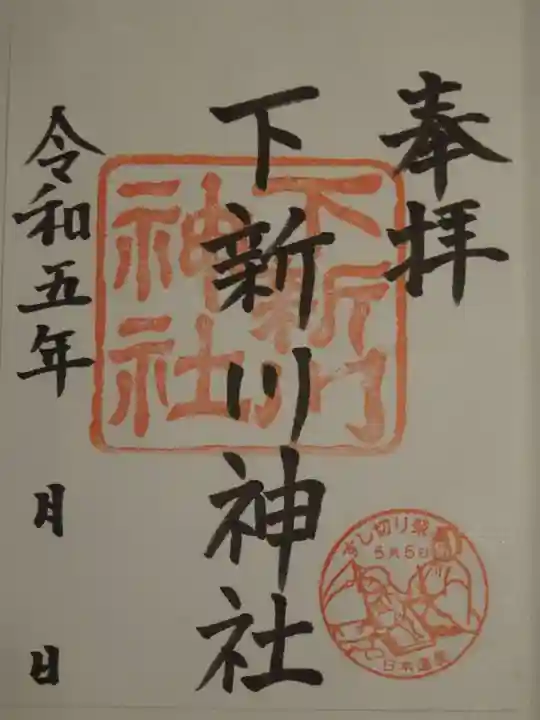 奉拝
下新川神社
令和五年 月 日
下新川
神社
すし切り祭
5月5日
日本遺産